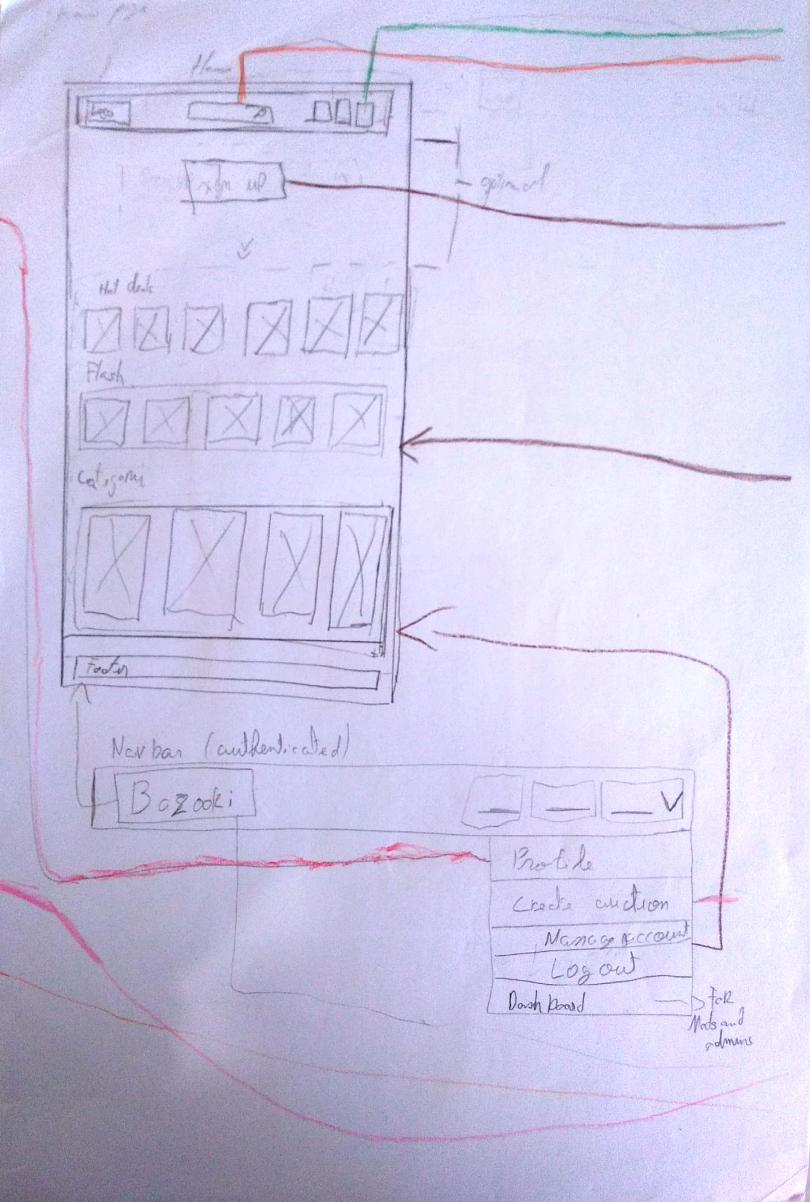 Home
Logo
sign up
optional
Hot deals
Flash
Categori
Footer
Navbar (authenticated)
Bazooki
Profile
Create auction
Manage Account
Log out
Dashboard
FoR
Mods and
admins